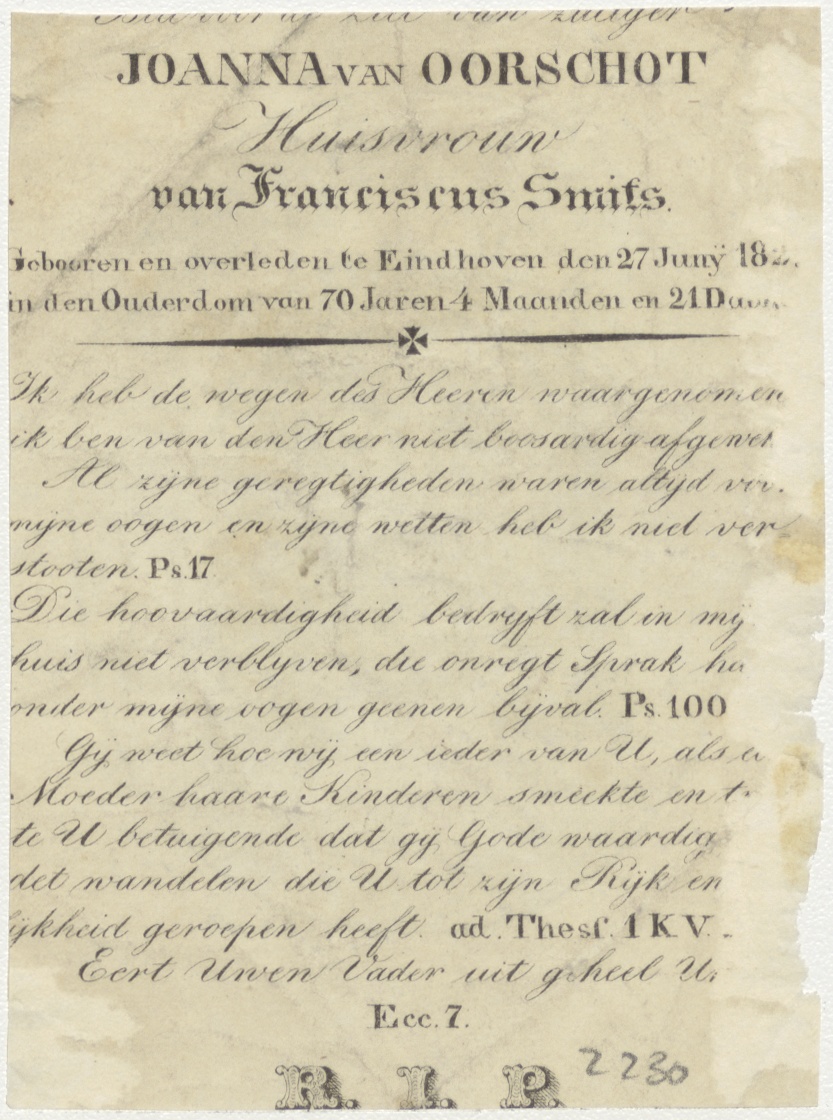 Bid voor de Ziel van zaliger
JOANNA VAN OORSCHOT
Huisvrouw
van Franciscus Smits.
Gebooren en overleden te Eindhoven den 27 Junÿ
in den Ouderdom van 70 Jaren 4 Maanden en 21
Ik heb de wegen des Heeren waargenomen
ik ben van den Heer niet boosardig
Al zijne geregtigheden waren altijd
mijne oogen en zijne wetten heb ik niet ver
stooten. Ps. 17
Die hoovaardigheid bedryft zal in mij
huis niet verblyven, die onregt Sprak
onder mijne oogen geenen bijval. Ps. 100
Gij weet hoe wij een ieder van U, als
Moeder haare Kinderen smeekte en
te U betuigende dat gij Gode waardig
det wandelen die U tot zijn Rijk en
ijkheid geroepen heeft. ad. Thesf. 1 K V.
Eert Uwen Vader uit geheel
Ecc. 7.
R. I. P.
2230